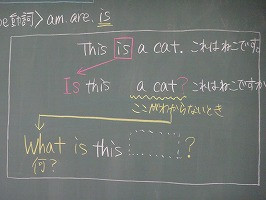 be動詞> am. are. is
This is a cat. これはねこです。
Is this a cat? これはねこですか
ここがわからないとき
What is this ?
何?